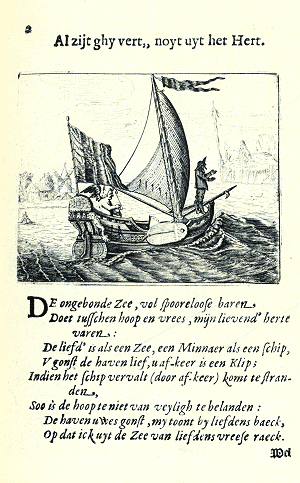 2
Al zijt ghy vert,, noyt uyt het Hert.
DE ongebonde Zee, vol spooreloose baren,
Doet tusschen hoop en vrees, mijn lievend' herte
varen:
De liefd' is als een Zee, een Minnaer als een schip,
V gonst de haven lief, u af-keer is een Klip;
Indien het schip vervalt (door af-keer) komt te stran-
den,
Soo is de hoop te niet van veyligh te belanden:
De haven uwes gonst, my toont by liefdens baeck,
Op dat ick uyt de Zee van liefdens vreese raeck.